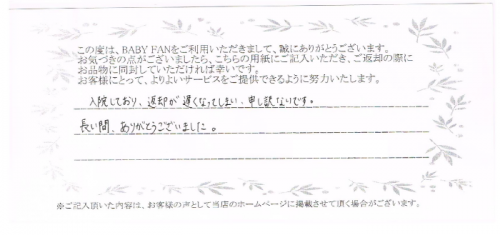 この度は、BABY FANをご利用いただきまして、誠にありがとうございます。
お気づきの点がございましたら、こちらの用紙にご記入いただき、ご返却の際に
お品物に同封していただければ幸いです。
お客様にとって、よりよいサービスをご提供できるように努力いたします。
入院しており、返却が遅くなってしまい、申し訳ないです。
長い間、ありがとうございました。
※ご記入頂いた内容は、お客様の声として当店のホームページに掲載させて頂く場合がございます。